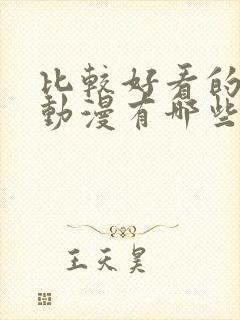 比較好看的
動漫有哪些
王天昊